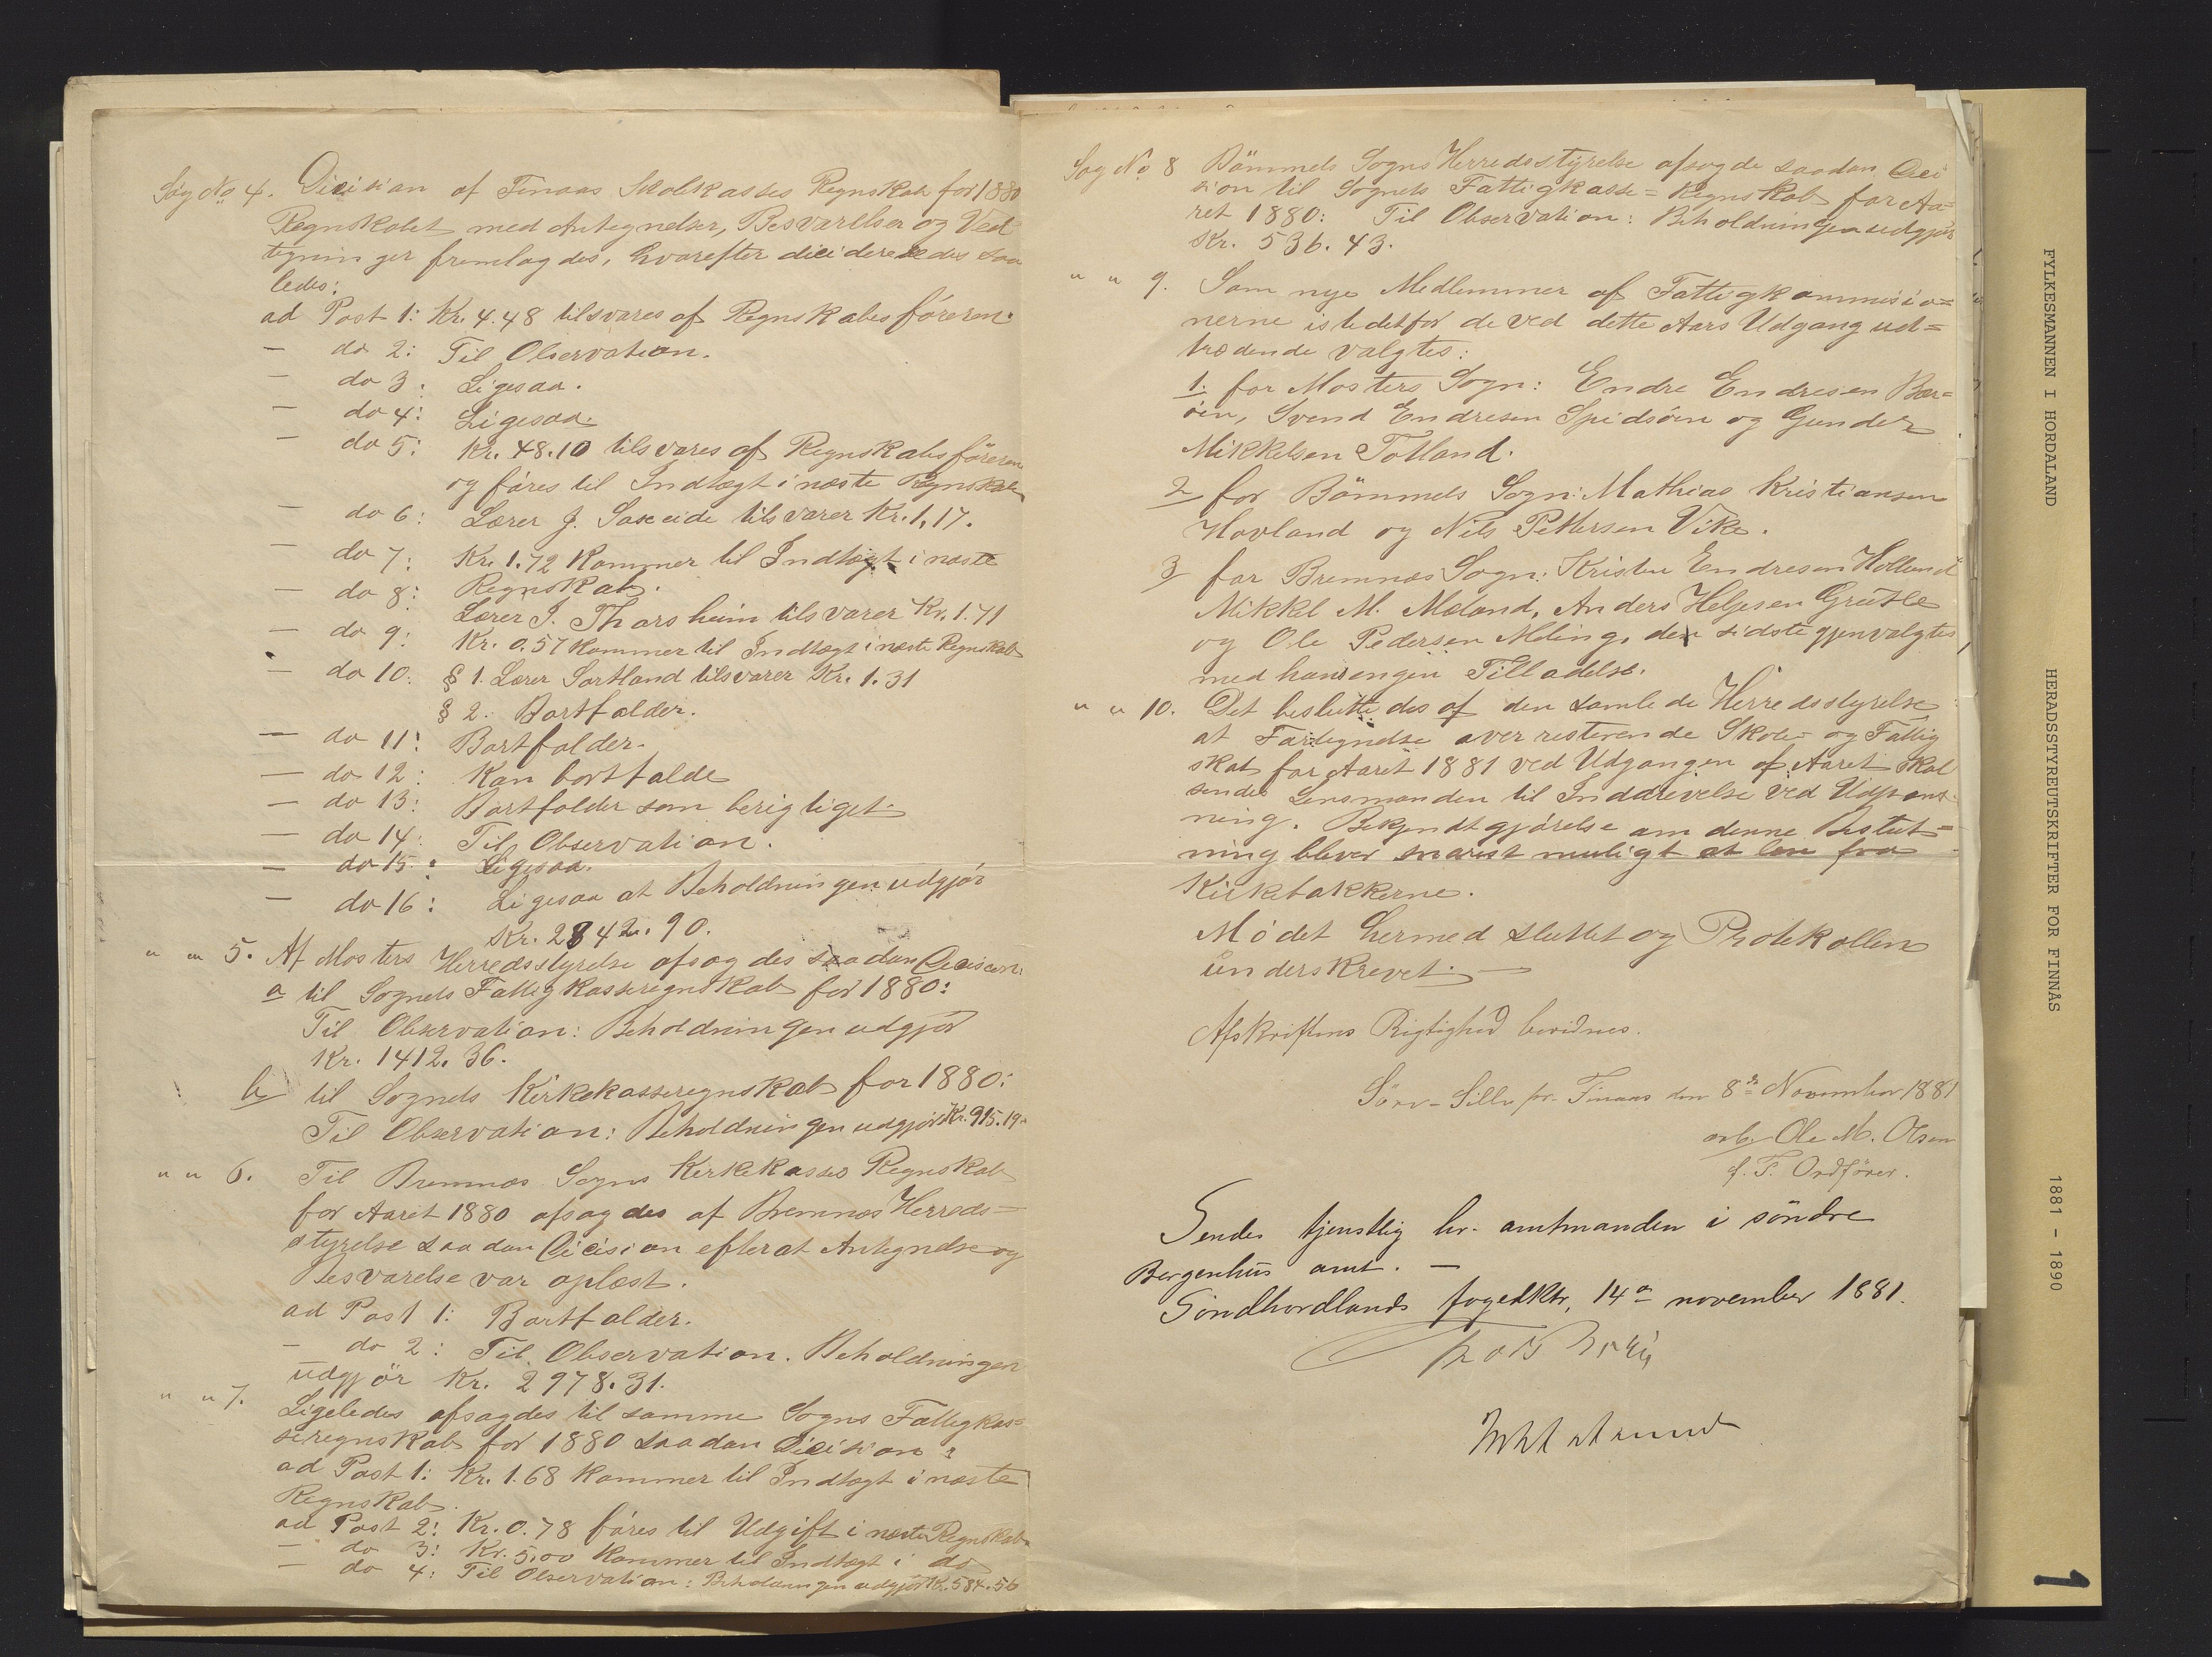 Sag No 4. Dicision af Finaas Skolekasses Regnskab for 1880
Regnskabet med Antegnelser, Besvarelser og Ved
tegninger fremlagdes, hvorefter dicideredes saa
ledes:
ad Post 1: Kr. 4.48 tilsvares af Regnskabsføreren.
— do 2: Til Observation.
— do 3: Ligesaa.
— do 4: Ligesaa.
— do 5: Kr. 48.10 tilsvares af Regnskabsføreren
og føres til Indtægt i næste Regnskab
— do 6: Lærer J. Saxeide tilsvarer Kr. 1,17.
— do 7: Kr. 1.72 kommer til Indtægt i næste
Regnskab.
— do 8: Lærer J. Thorsheim tilsvarer Kr. 1.71
— do 9: Kr. 0.57 kommer til Indtægt i næste Regnskab
— do 10: § 1. Lærer Sortland tilsvarer Kr. 1.31
§ 2. Bortfalder.
— do 11: Bortfalder.
— do 12: Kan bortfalde
— do 13: Bortfalder som berigtiget.
— do 14: Til Observation.
— do 15: Ligesaa.
— do 16: Ligesaa at Beholdningen udgjør
Kr. 2842.90.
" " 5. Af Mosters Herredsstyrelse afsagdes saadan Decision:
a til Sognets Fattigkasseregnskab for 1880:
Til Observation: Beholdningen udgjør
Kr. 1412.36.
b til Sognets Kirkekasseregnskab for 1880:
Til Observation: Beholdningen udgjør Kr. 915.19.
" " 6. Til Bremnæs Sogns Kirkekasses Regnskab
for Aaret 1880 afsagdes af Bremnæs Herreds=
styrelse saadan Dicision efterat Antegnelse og
Besvarelse var oplæst.
ad Post 1: Bortfalder.
— do 2: Til Observation. Beholdningen
udgjør Kr. 2978.31.
" " 7. Ligeledes afsagdes til samme Sogns Fattigkas=
seregnskab for 1880 saadan Dicision:
ad Post 1: Kr. 1.68 kommer til Indtægt i næste
Regnskab.
ad Post 2: Kr. 0.78 føres til Udgift i næste Regnskab
— do 3: Kr. 5.00 kommer til Indtægt i do
— do 4: Til Observation: Beholdningen udgjør Kr. 584.56
Sag No 8 Bömmels Sogns Herredsstyrelse afsagde saadan Deci
sion til Sognets Fattigkasse=Regnskab for Aa=
ret 1880: Til Observation: Beholdningen udgjør
Kr. 536.43.
" " 9. Som nye Medlemmer af Fattigkommisio=
nerne istedetfor de ved dette Aars Udgang ud=
trædende valgtes:
1. for Mosters Sogn: Endre Endresen Bær=
øen, Svend Endresen Spidsøen og Gunder
Mikkelsen Totland.
2 for Bömmels Sogn: Mathias Kristiansen
Hovland og Nils Pettersen Vike.
3 for Bremnæs Sogn: Kristen Endresen Hollund
Mikkel M. Mæland, Anders Helgesen Grutle
og Ole Pedersen Meling, den sidste gjenvalgtes
med hans egen Tilladelse.
" " 10. Det besluttedes af den samlede Herredsstyrelse
at Fortegnelse over resterende Skole- og Fattig
skat for Aaret 1881 ved Udgangen af Aaret skal
sendes Lensmanden til Inddrivelse ved Udpant
ning. Bekjendtgjørelse om denne Beslut=
ning bliver snarest muligt at læse fra
Kirkebakkerne.
Mödet hermed sluttet og Protokollen
underskrevet. —
Afskriftens Rigtighed bevidnes.
Söre-Lille pr. Finaas den 8de November 1881
Ole M. Olsen
f. T. Ordfører.
Sendes tjenstlig hr. amtmanden i söndre
Bergenhus amt. —
Söndhordlands fogedktr, 14de november 1881.
FYLKESMANNEN I HORDALAND
HERADSSTYREUTSKRIFTER FOR FINNÅS
1881 - 1890
1